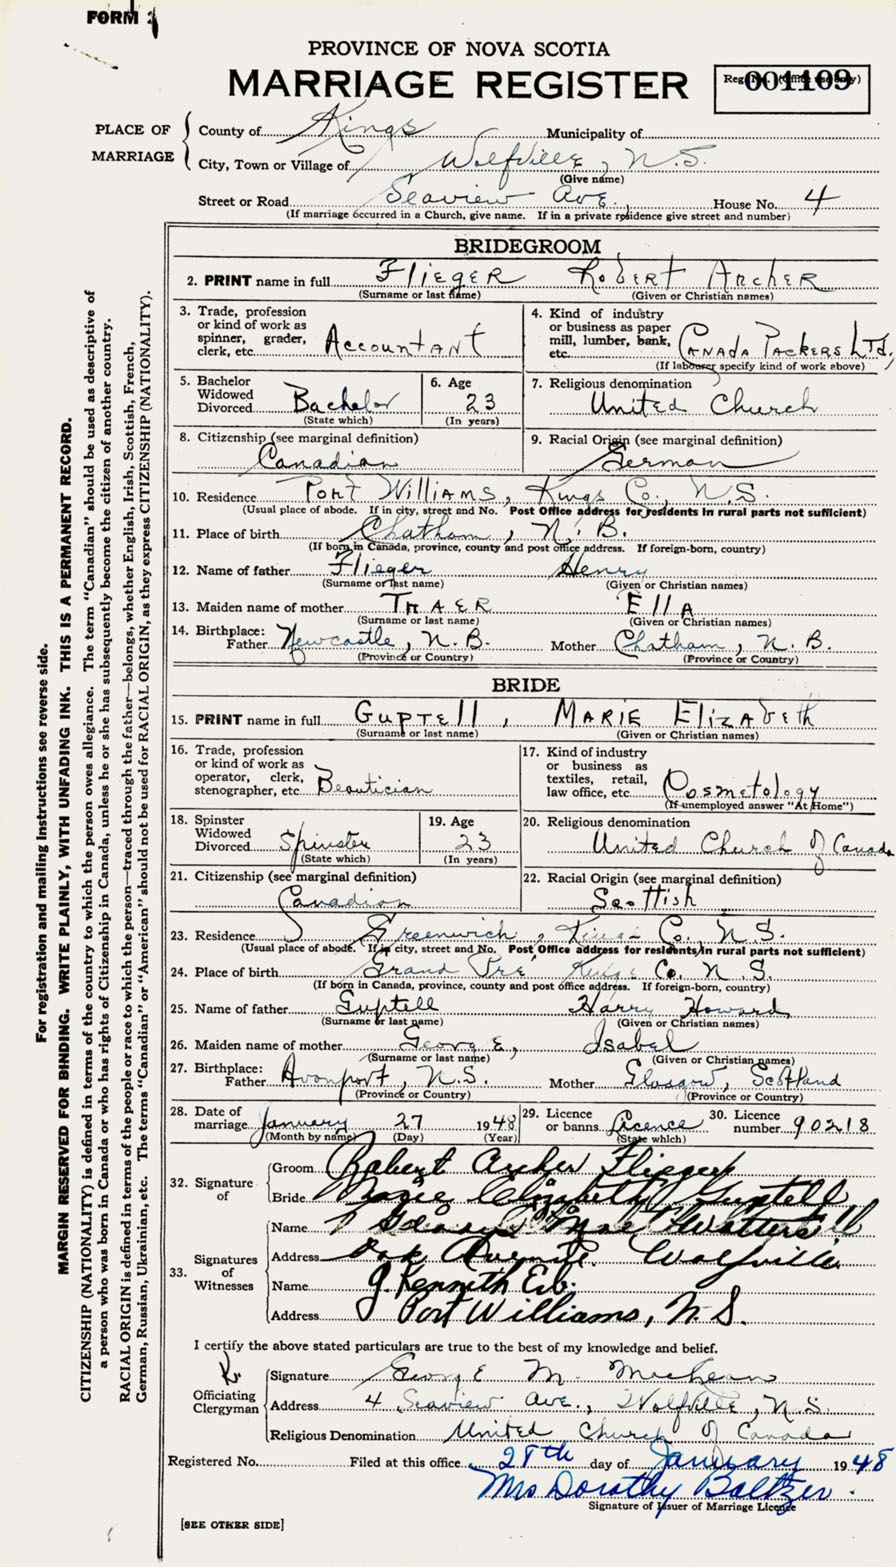 FORM
PROVINCE OF NOVA SCOTIA
MARRIAGE REGISTER
Reg. No. (Office use only)
001109
PLACE OF MARRIAGE
County of Kings Municipality of
City, Town or Village of Wolfville, N.S.
(Give name)
Street or Road Seaview Ave. House No. 4
(If marriage occurred in a Church, give name. If in a private residence give street and number)
BRIDEGROOM
2. PRINT name in full Flieger Robert Archer
(Surname or last name) (Given or Christian names)
3. Trade, profession or kind of work as spinner, grader, clerk, etc. Accountant
4. Kind of industry or business as paper mill, lumber, bank, etc. Canada Packers Ltd.,
(If labourer specify kind of work above)
5. Bachelor Widowed Divorced Bachelor
(State which)
6. Age 23
(In years)
7. Religious denomination
United Church
8. Citizenship (see marginal definition)
Canadian
9. Racial Origin (see marginal definition)
German
10. Residence Port Williams, Kings Co., N.S.
(Usual place of abode. If in city, street and No. Post Office address for residents in rural parts not sufficient)
11. Place of birth Chatham, N. B.
(If born in Canada, province, county and post office address. If foreign-born, country)
12. Name of father Flieger Henry
(Surname or last name) (Given or Christian names)
13. Maiden name of mother Ella
(Surname or last name) (Given or Christian names)
14. Birthplace: Father Newcastle, N.B. Mother Chatham, N. B.
(Province or Country) (Province or Country)
BRIDE
15. PRINT name in full Guptell, Marie Elizabeth
(Surname or last name) (Given or Christian names)
16. Trade, profession or kind of work as operator, clerk, stenographer, etc. Beautician
17. Kind of industry or business as textiles, retail, law office, etc. Cosmetology
(If unemployed answer "At Home")
18. Spinster Widowed Divorced Spinster
(State which)
19. Age 23
(In years)
20. Religious denomination
United Church of Canada
21. Citizenship (see marginal definition)
Canadian
22. Racial Origin (see marginal definition)
Scottish
23. Residence Greenwich, Kings Co. N.S.
(Usual place of abode. If in city, street and No. Post Office address for residents in rural parts not sufficient)
24. Place of birth Grand Pre, Kings Co. N.S.
(If born in Canada, province, county and post office address. If foreign-born, country)
25. Name of father Guptell Harry Howard
(Surname or last name) (Given or Christian names)
26. Maiden name of mother George, Isabel
(Surname or last name) (Given or Christian names)
27. Birthplace: Father Avonport, N.S. Mother Glasgow, Scotland
(Province or Country) (Province or Country)
28. Date of marriage January 27 1948
(Month by name) (Day) (Year)
29. Licence or banns Licence
(State which)
30. Licence number 90218
32. Signature of
Groom Robert Archer Flieger
Bride Marie Elizabeth Guptell
33. Signatures of Witnesses
Name Mae
Address Oak Avenue. Wolfville
Name J. Kenneth Erb.
Address Port Williams, N.S.
I certify the above stated particulars are true to the best of my knowledge and belief.
Officiating Clergyman
Signature George M.
Address 4 Seaview Ave., Wolfville, N.S.
Religious Denomination United Church of Canada
Registered No. Filed at this office 28th day of January 1948
Mrs Dorothy Baltzer.
Signature of Issuer of Marriage Licence
[SEE OTHER SIDE]
For registration and mailing instructions see reverse side.
MARGIN RESERVED FOR BINDING. WRITE PLAINLY, WITH UNFADING INK. THIS IS A PERMANENT RECORD.
CITIZENSHIP (NATIONALITY) is defined in terms of the country to which the person owes allegiance. The term "Canadian" should be used as descriptive of
a person who was born in Canada or who has rights of Citizenship in Canada, unless he or she has subsequently become the citizen of another country.
RACIAL ORIGIN is defined in terms of the people or race to which the person—traced through the father—belongs, whether English, Irish, Scottish, French,
German, Russian, Ukrainian, etc. The terms "Canadian" or "American" should not be used for RACIAL ORIGIN, as they express CITIZENSHIP (NATIONALITY).